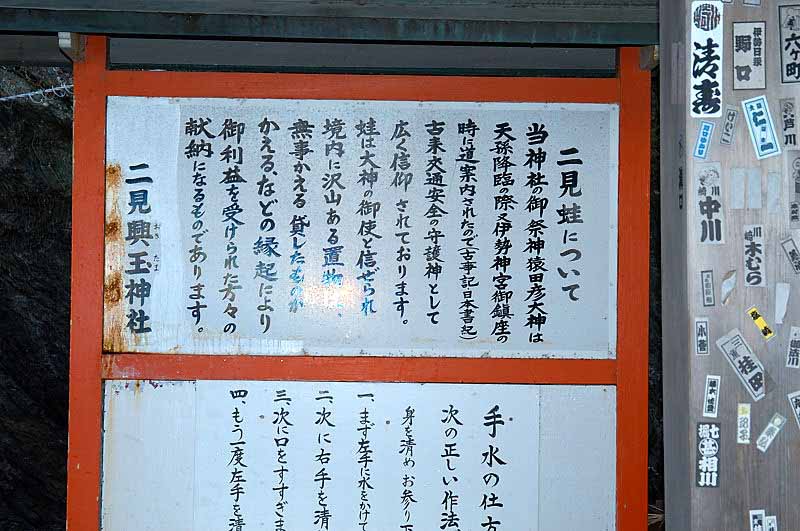 二見蛙について
当神社の御祭神猿田彦大神は
天孫降臨の際又伊勢神宮御鎮座の
時に道案内されたので(古事記日本書紀)
古来交通安全の守護神として
広く信仰されております。
蛙は大神の御使と信ぜられ
境内に沢山ある置物は、
無事かえる 貸したものが
かえる、などの縁起により
御利益を受けられた方々の
献納になるものであります。
二見興玉神社
おき たま
手水の仕方
次の正しい作法
身を清め お参り下
一、まず左手に水をかけて
二、次に右手を清
三、次に口をすすぎま
四、もう一度左手を清
清寿
野口
六ケ町
芦川
中川
川崎
木むら
桂田
小菅
相川